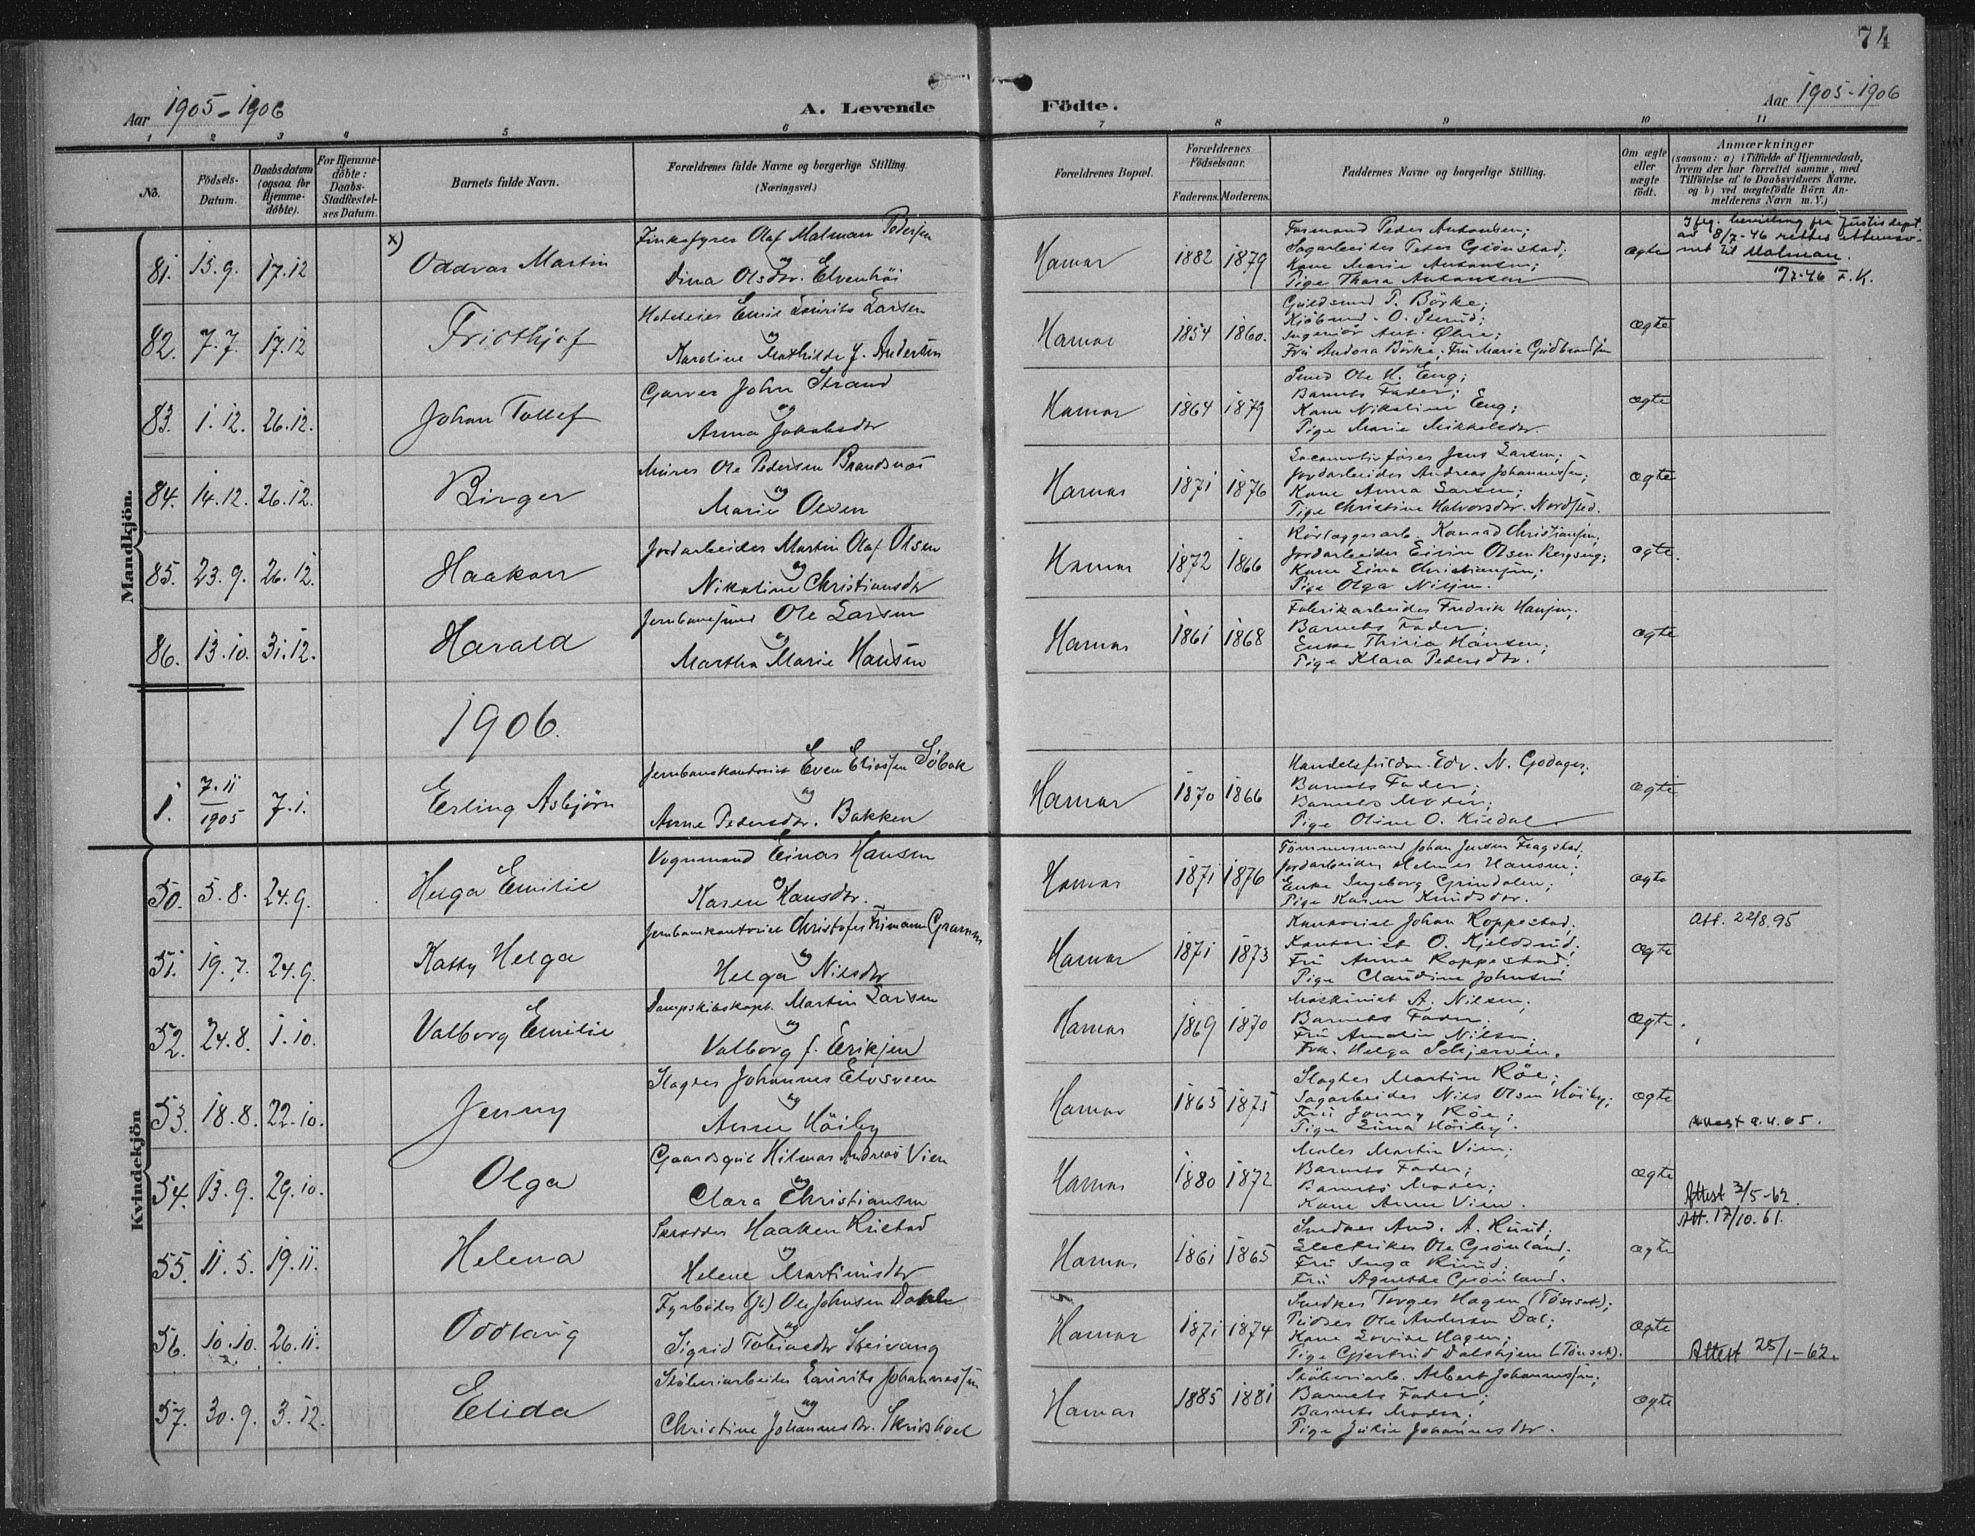 74
Aar 1905-1906
A. Levende
Födte.
Aar 1905-1906
1 2 3 4 5 6 7 8 9 10 11
No.
Födsels-Datum.
Daabsdatum (ogsaa for Hjemmedöbte).
For Hjemmedöbte: Daabs-Stadfæstelses Datum.
Barnets fulde Navn.
Forældrenes fulde Navne og borgerlige Stilling.
(Næringsvei.)
Forældrenes Bopæl.
Forældrenes Födselsaar.
Faderens. Moderens.
Faddernes Navne og borgerlige Stilling.
Om ægte eller uægte födt.
Anmærkninger
(saasom: a) i Tilfælde af Hjemmedaab, hvem der har forrettet samme, med Tilföielse af to Daabsvidners Navne, og b) ved uægtefödte Börn Anmelderens Navn m. V.)
Mandkjön.
81. 15.9. 17.12 x) Oddvar Martin
Olaf Malman Pedersen
og
Dina Olsdtr. Elvenhöi
Hamar 1882 1879
Formand Peder Antonsen;
Sagarbeider Peder Grönstad;
Kone Marie Antonsen;
Pige Thora Antonsen
ægte
I flg. bevilling fra Justisdept.
av 8/7-46 rettes
til Malman.
F.K.
82. 7.7. 17.12 Fridthjof
Hoteleier Emil Laurits Larsen
og
Karoline Mathilde f. Andersen
Hamar 1854 1860.
Guldsmed P. Börke;
Kjöbmd. O. Strud;
Ingeniör Ant. Öhre;
Frü Andora Börke; Frü Marie Gudbrandsen
ægte
83. 1.12. 26.12. Johan Tollef
Garver John Strand
og
Anna Jakobsdtr
Hamar 1864 1879
Smed Ole H. Eng;
Barnets Fader;
Kone Nikoline Eng;
Pige Marie Mikkelsdtr.
ægte
84. 14.12. 26.12. Birger
Murer Ole Pedersen Brandsnæs
og
Marie Olsen
Hamar 1871 1876
Locomotivförer Jens Larsen;
Jordarbeider Andreas Johannessen;
Kone Anna Larsen;
Pige Christine Halvorsdtr. Nordsted.
ægte
85. 23.9. 26.12. Haakon
Jordarbeider Martin Olaf Olsen
og
Nikoline Christiansdtr
Hamar 1872 1866
Rörlæggerarb. Konrad Christiansen;
Jordarbeider Eivin Olsen Bergseng;
Kone Lina Christiansen;
Pige Olga Nilsen.
ægte.
86. 13.10. 31.12. Harald
Jernbanesmed Ole Larsen
og
Martha Marie Hansen
Hamar 1861 1868
Fabrikarbeider Fredrik Hansen;
Barnets Fader;
Enke Thrina Hansen;
Pige Klara Pedersdtr.
ægte
1906.
1. 7.11 1905 7.1. Erling Asbjörn
Jernbanekontorist Even Eliassen Söbak
og
Anne Pedersdtr. Bakken
Hamar 1870 1866
Edv. N. Godager;
Barnets Fader;
Barnets Moder;
Pige Oline O. Kildal
ægte
Kvindekjön
50. 5.8. 24.9. Helga Emilie
Vognmand Einar Hansen
og
Karen Hansdtr.
Hamar 1871 1876
Tömmermand Johan Jensen Fragstad;
Jordarbeider Helmer Hansen;
Enke Ingeborg Grindalen;
Pige Karen Knudsdtr.
ægte
51. 19.7. 24.9. Katty Helga
Jernbanekontorist Christofer Frimann Gramm
og
Helga Nilsdtr
Hamar 1871 1873
Kontorist Johan Koppestad;
Kontorist O. Kjeldsrud;
Frü Anne Koppestad;
Pige Claudine Johnsen
ægte
Att. 22/8.95
52. 24.8. 1.10. Valborg Emilie
Dampskibskapt. Martin Larsen
og
Valborg f. Eriksen
Hamar 1869 1870
Maskinist A. Nilsen;
Barnets Fader;
Frü Amalie Nilsen;
Frk. Helga Schjerven.
ægte.
53. 18.8. 22.10. Jenny
Slagter Johannes Elvsveen
og
Anne Höiby
Hamar 1865 1875
Slagter Martin Röe;
Sagarbeider Nils Olsen Höiby;
Frü Jenny Röe;
Pige Lina Höiby.
ægte
54. 13.9. 29.10. Olga
Gaardsgut Hilmar Andreas Vien
og
Clara Christiansen
Hamar 1880 1872
Maler Martin Vien;
Barnets Fader;
Barnets Moder;
Kone Anne Vien.
ægte
Attest 3/5-62.
55. 11.5. 19.11. Helena
Skrædder Haaken Rustad
og
Helene Martinusdtr
Hamar 1861 1865
Snedker And. A. Ruud;
Electriker Ole Grönland;
Frü Inga Ruud;
Frü Agnethe Grönland.
ægte
Att. 17/10.61.
56. 10.10. 26.11. Oddlaug
Fyrböder Ole Johnsen Dahle
og
Sigrid Tobiasdtr Skeivang
Hamar 1871 1874
Snedker Torger Hagen (Tönset);
Pudser Ole Andersen Dal;
Kone Lovise Hagen;
Pige Gjertrud Dalshjem (Tönset).
ægte
Attest 25/1-62.
57. 30.9. 3.12. Elida
Stöberiarbeider Laurits Johannessen
og
Christine Johannesdtr. Skridshol
Hamar 1885 1881
Stöberiarb. Albert Johannessen;
Barnets Fader;
Barnets Moder;
Pige Julie Johannesdtr.
ægte